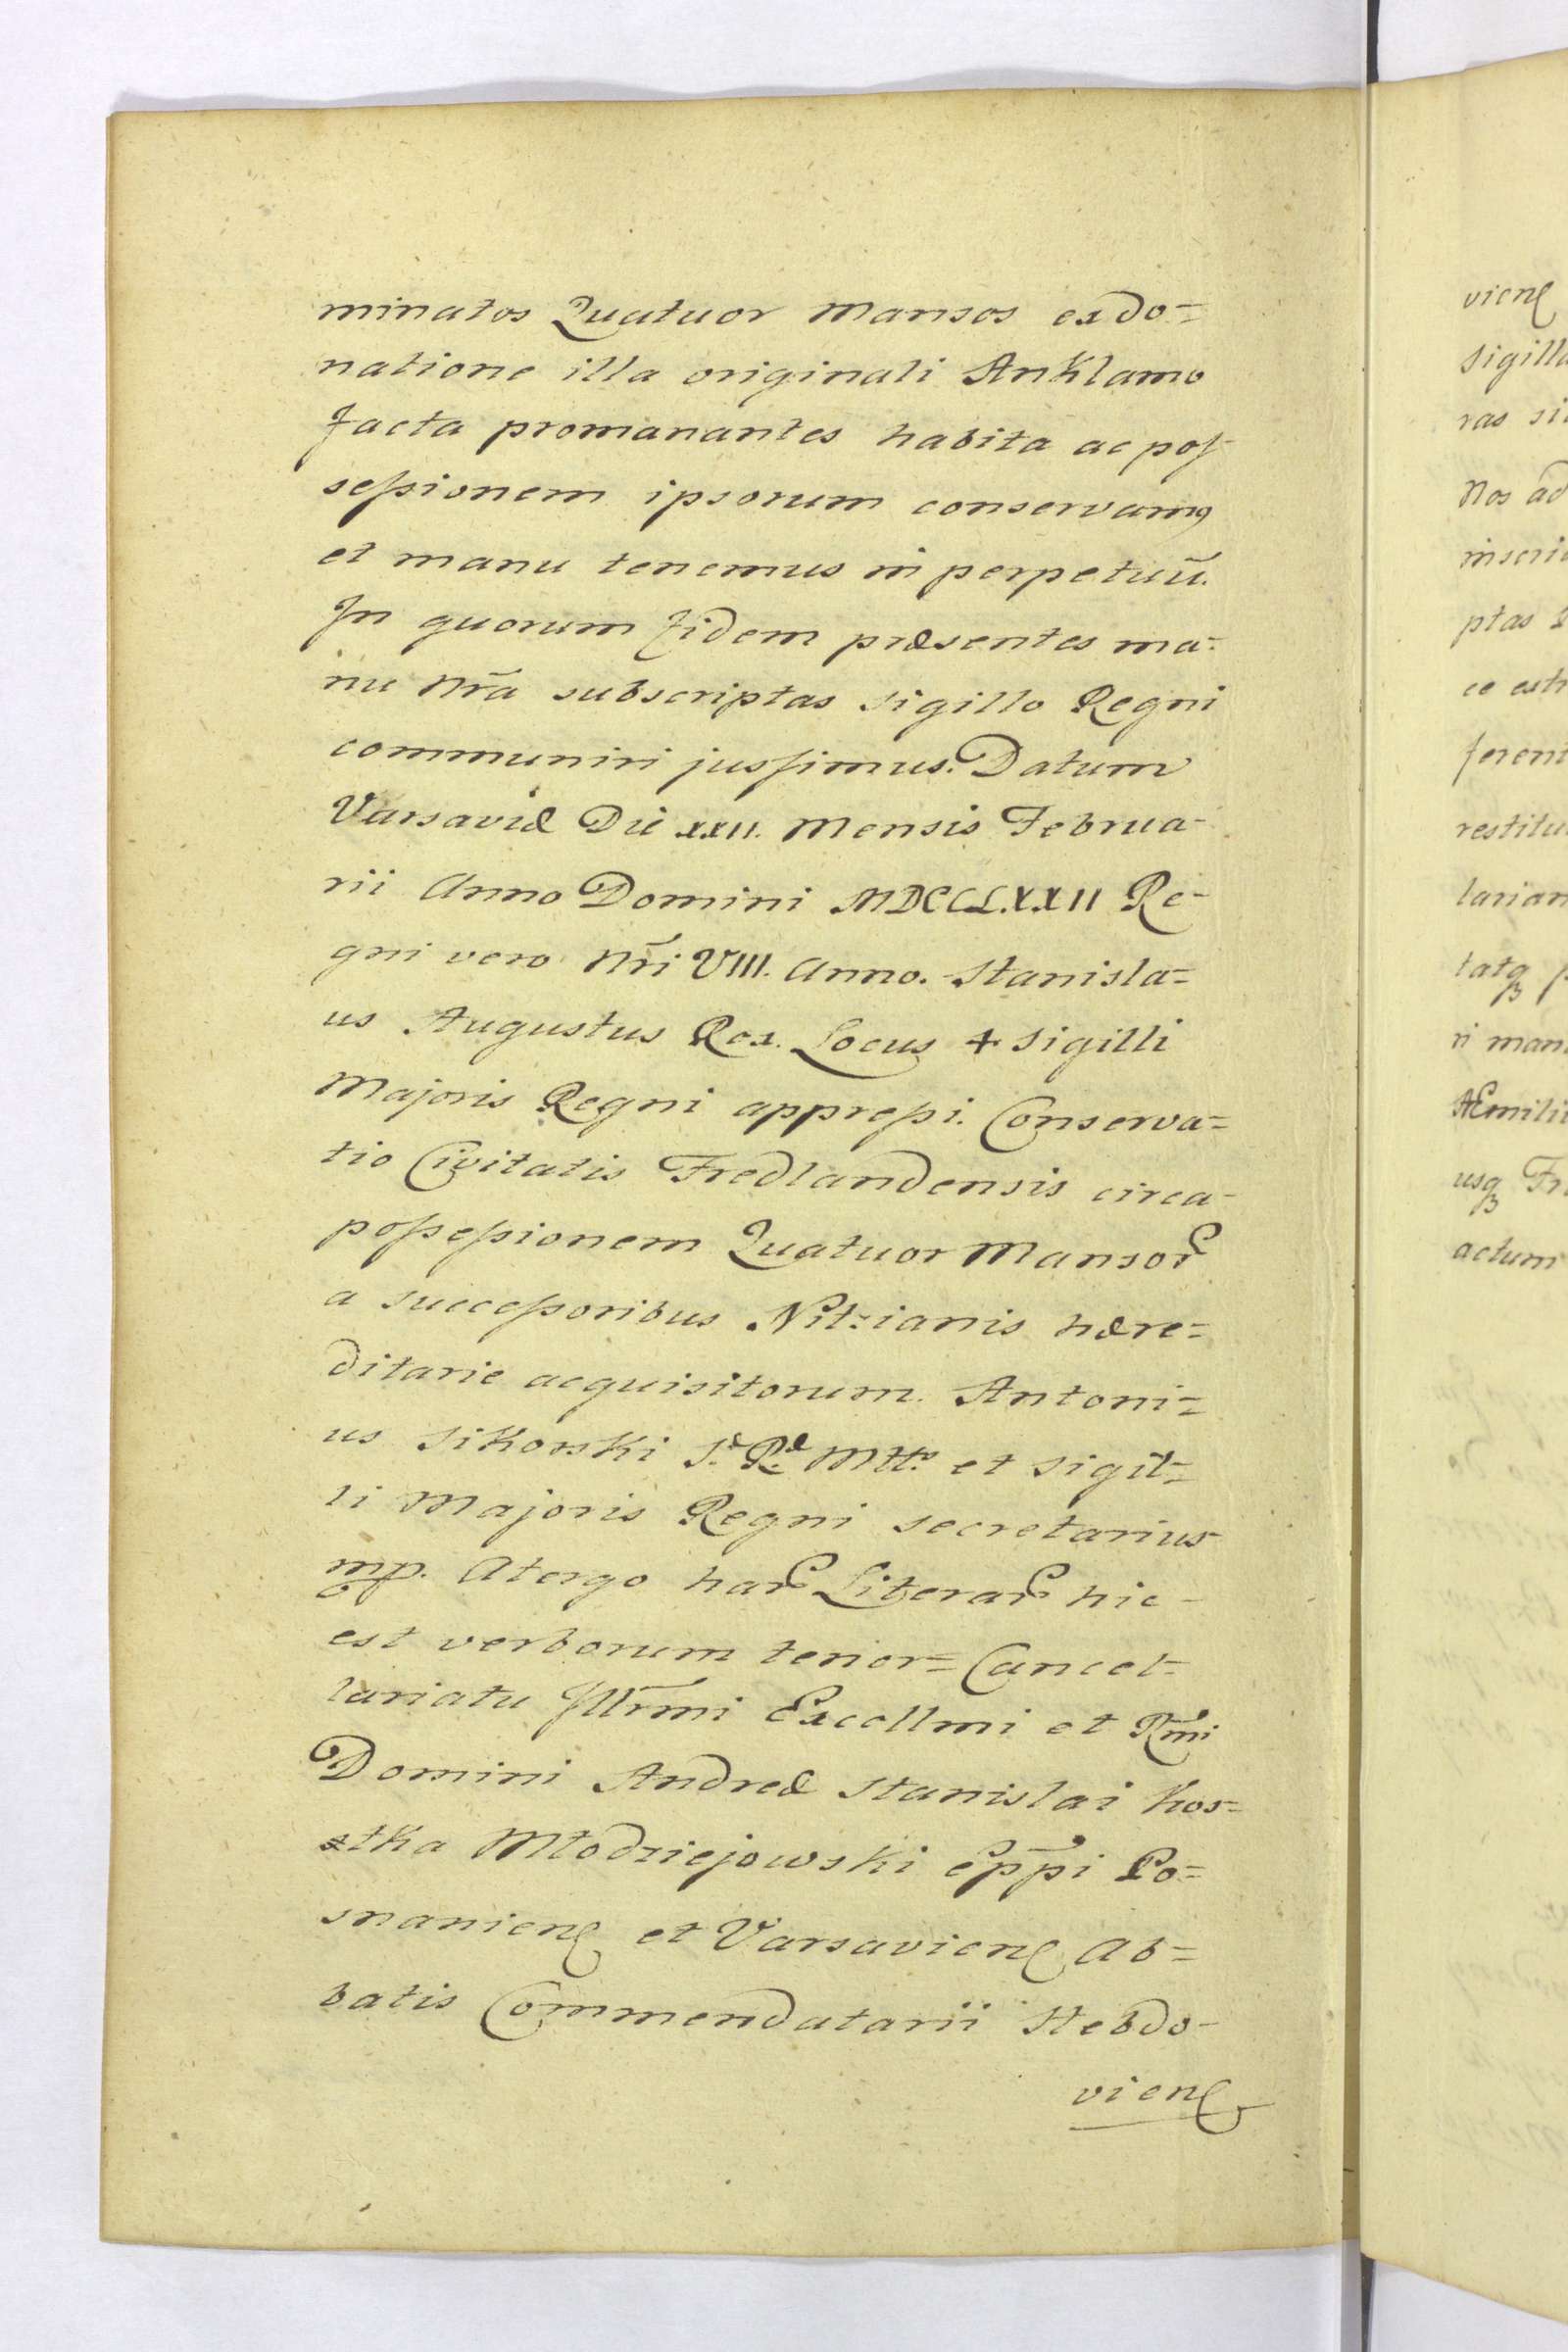 minatos Quatuor Mansos ex do=
natione illa originali Anklamo
facta promanantes habita ac pos-
sessionem ipsorum conservamꝰ
et manu tenemus in perpetuū.
In quorum fidem præsentes ma-
nu Nr̃a subscriptas Sigillo Regni
communiri jussimus. Datum
Varsaviæ Die XXII. Mensis Februa-
rii Anno Domini MDCCLXXII Re-
gni vero Nr̃i VIII. Anno. Stanisla=
us Augustus Rex. Locus + Sigilli
Majoris Regni appressi. Conserva=
tio Civitatis Fredlandensis circa-
possessionem Quatuor Mansoꝝ
a successoribus Nitzianis hære=
ditarie acquisitorum. Antoni=
us Sikorski S. R. Mtt. et Sigil=
li Majoris Regni secretarius
mp. A tergo haꝝ Literaꝝ hic-
est verborum tenor= Cancel-
lariatu Illr̃mi Excellmi et Rm̃i
Domini Andreæ Stanislai Kos=
stka Młodziejowski Epp̃i Po=
snanienꝭ et Varsavienꝭ Ab=
batis Commendatarii Hebdo-
vienꝭ
vienꝭ
Sigill
ras si
Nos ad
inscri
ptas
ce
ferent
restitu
larian
tatqꝫ p
ri man
Æmili
usqꝫ Fr
actum